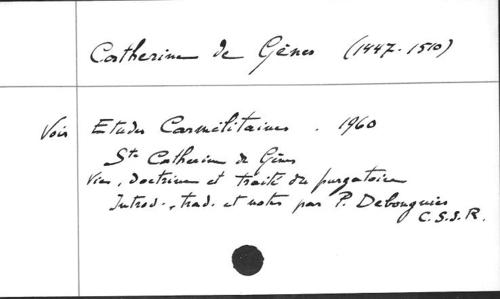 Catherine de Gênes (1447-1510)
Voir Etudes Carmélitaines . 1960
Ste Catherine de Gênes
Vies, doctrine et traité du purgatoire
Introd., trad. et notes par P. Debongnies
C.S.S.R.